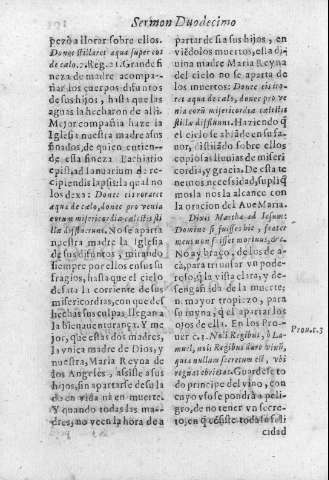 Sermon Duodecimo
peço a llorar sobre ellos.
Donec stillaret aqua super eos
de cælo. 2. Reg. 21. Grande fi
neza de madre acompa-
ñar los cuerpos difuntos
de sus hijos, hasta que las
aguas la hecharon de alli.
Mejor compañia haze la
Iglesia nuestra madre a sus
finados, de quien entien-
de esta fineza
ad Ianuarium de re-
cipiendis lapsis: la qual no
los dexa: Donec ros roraret
aqua de cælo, donec pro venia
eorum misericordia cælestis sti
lla diffluruni. No se aparta
nuestra madre la Iglesia
de sus difuntos, mirando
siempre por ellos con sus su
fragios, hasta que el cielo
desata la corriente de sus
misericordias, con que des
hechas sus culpas, llegan a
la bienauenturança. Y me
jor, que estas dos madres,
la vnica madre de Dios, y
nuestra, Maria Reyna de
los Angeles, assiste a sus
hijos, sin apartarse de su la
do en vida ni en muerte.
Y quando todas las ma-
dres, no veen la hora de a
partar de si a sus hijos, en
viédolos muertos, ella di-
uina madre Maria Reyna
del cielo no se aparta de
los muertos: Donec
ret aqua de cælo, donec pro ve
nia eorū misericordia cælestis
stilla diffluni. Haziendo q̃
el cielo se ablāde en su fa-
uor, distilādo sobre ellos
copiosas lluuias de miseri
cordia, y gracia. De esta te
nemos necessidad, supliq̃
mosla nos la alcance con
la oracion del Aue Maria.
Dixit Martha ad Iesum:
Domine si fuisses hic, frater
meus non fuisset mortuus, &c.
No ay braço, de los de a-
ca, para triunfar vn pode-
roso, q̃ la vista clara, y de-
sengañada de la muerte:
ni mayor tropiezo, para
su ruyna, q̃ el apartar los
ojos de ella. En los Pro-
uer c. 3. Noli Regibus, ô La-
muel, noli Regibus dare vinū,
quia nullum secretum est, vbi
regnat ebrietas. Guardese to
do principe del vino, con
cuyo vso se pondrà a peli-
gro, de no tener vn secre-
to, en q̃ cōsiste toda su feli
cidad
Prou. c. 3